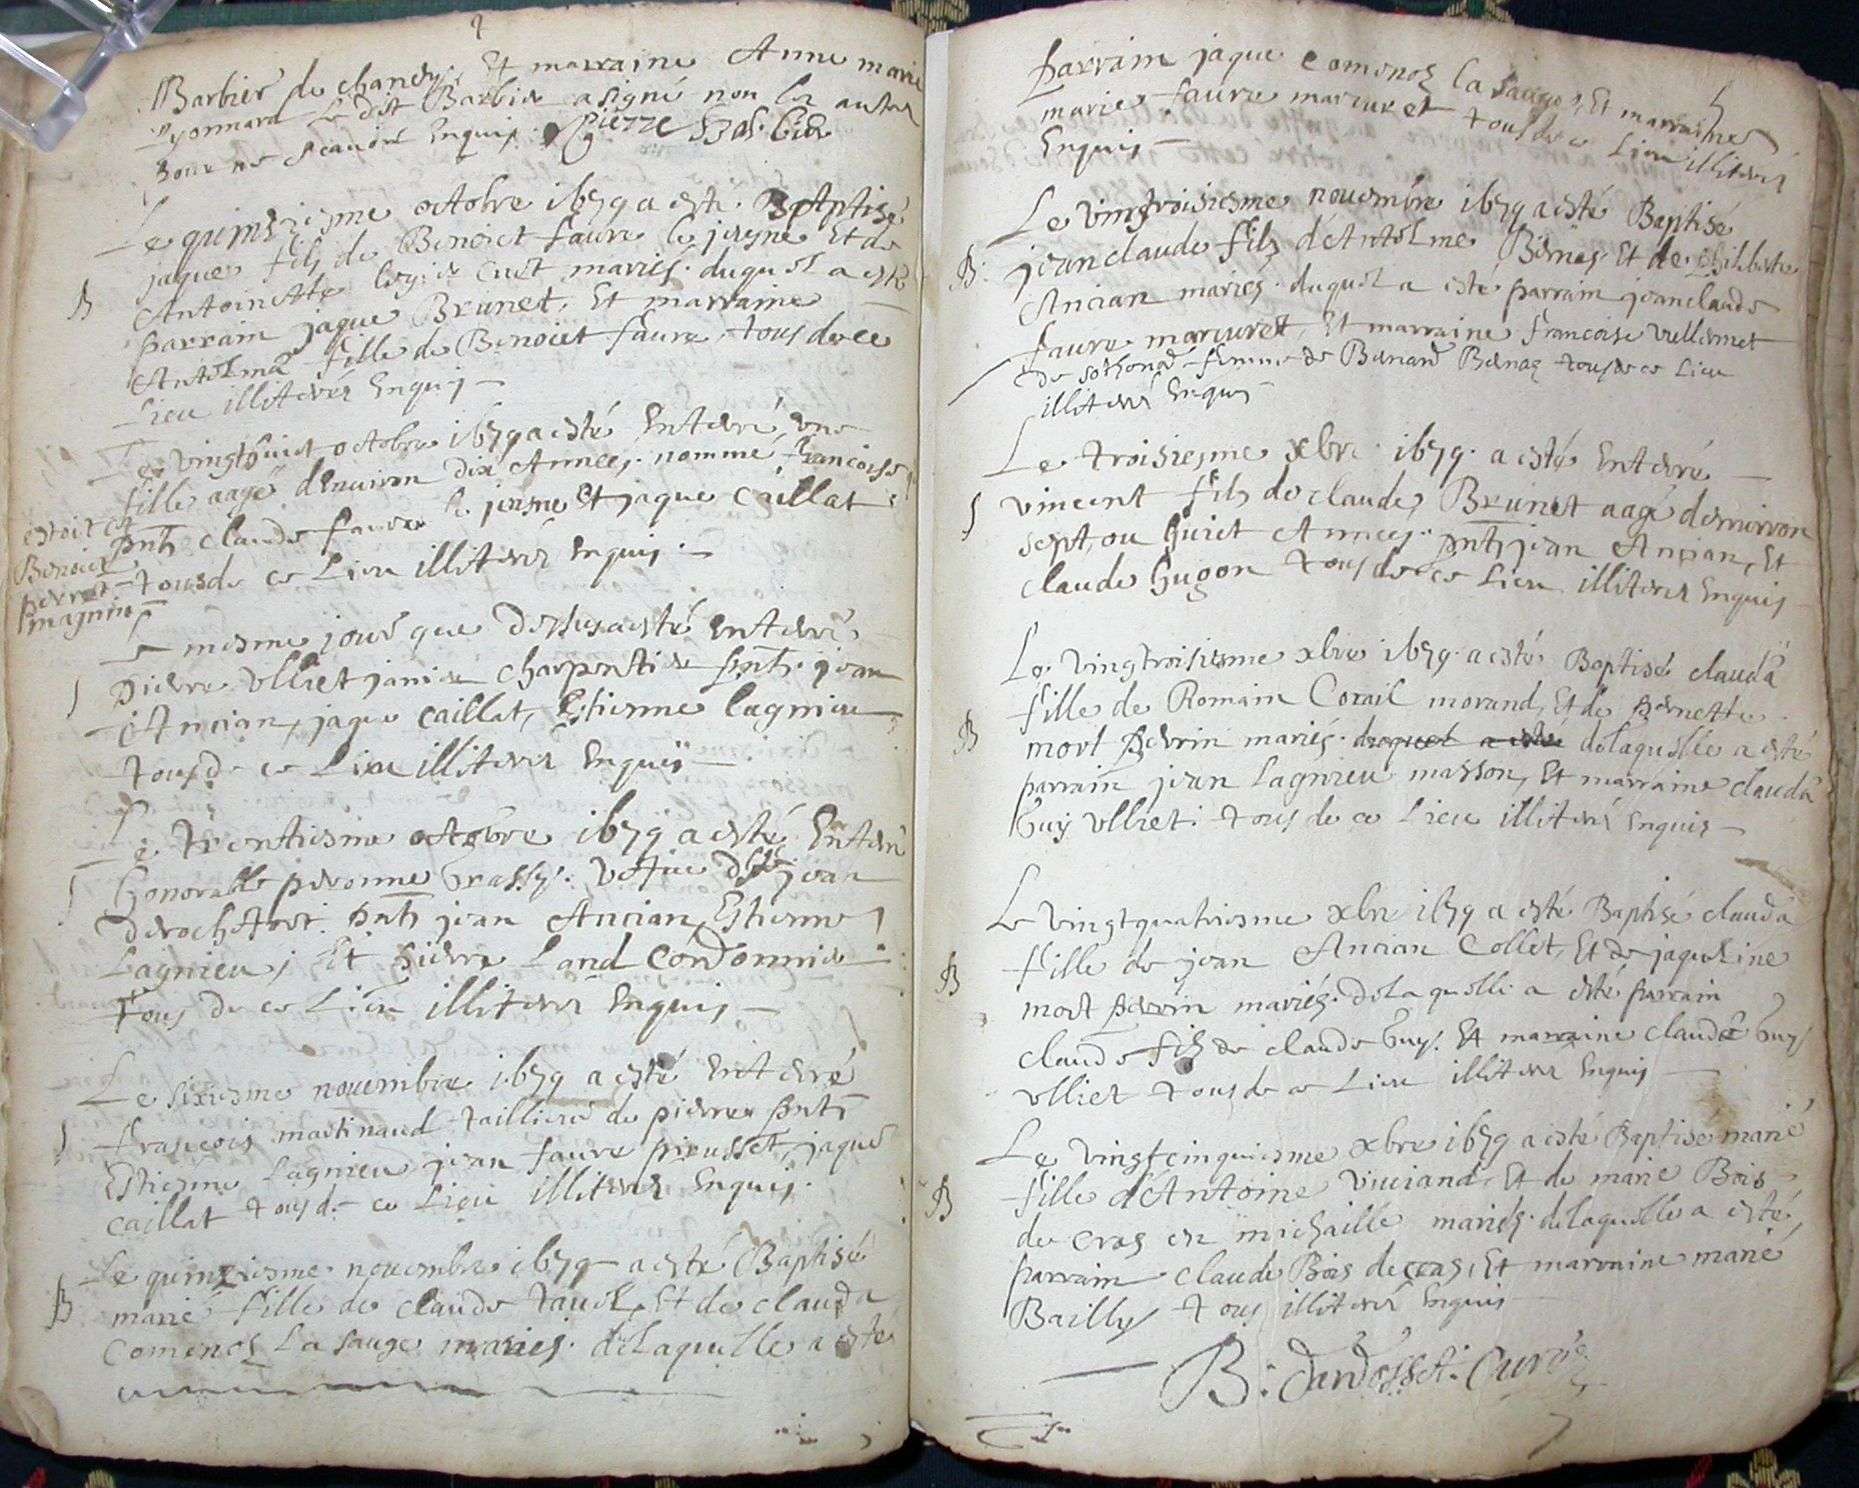 Barbier de chanay Et marraine Anne marie
Ledit Barbier a signé non les autres
pour ne scavoire Enquis Pierre Barbier
Le quinziesme octobre 1679 a esté Baptisé
jaque fils de Benoict faure le jeusne Et de
Antoinette mariés duquel a esté
parrain jaque Brunet, Et marraine
Antelma fille de Benoict faure, tous de ce
Lieu illiterés Enquis
Le vingthuict octobre 1679 a esté Enterré une
fille aagé d'Environ dix Annees nommé francoise
pnts claude faure le jeusne Et jaque Caillat
estoit
Benoict
perret
magnin
tous de ce Lieu illiterés Enquis
Le mesme jour que dessus a esté Enterré
pierre ulliet janin charpentier pnts jean
Ancian, jaque Caillat, Estienne Lagnieu
tous de ce Lieu illiterés Enquis
Le trentiesme octobre 1679 a esté Enterré
honorable peronne grassy vefue de jean
derochefort pnts jean Ancian, Estienne
Lagnieu, Et pierre Land Cordonnier
tous de ce Lieu illiterés Enquis
Le sixiesme nouembre 1679 a esté Enterré
francois martinaud taillieur de pierre pnts
Estienne Lagnieu jean faure jaque
Caillat tous de ce Lieu illiterés Enquis
Le quinziesme nouembre 1679 a esté Baptisé
B
marie fille de claude tauel, Et de clauda
Comenos La sauge mariés. de Laquelle a esté
parrain jaque Comenos La sauge, Et marraine
marie faure marcuret tous de ce Lieu illiterés
Enquis
Le vingtroisiesme nouembre 1679 a esté Baptisé
B
jean claude fils d'Antelme Bernas Et de philiberte
Ancian mariés duquel a esté parrain jean claude
faure marcuret, Et marraine francoise vulliermet
de sothonod femme de Bernard Bernas tous de ce Lieu
illiterés Enquis
Le troisiesme xbre 1679 a esté Enterré
vincent fils de claude Brunet aagé d'environ
sept, ou huict Annees pnts jean Ancian, Et
claude hugon tous de ce Lieu illiterés Enquis
Le vingtroisiesme xbre 1679 a esté Baptisé clauda
fille de Romain Corail morand, Et de pernette
B
mort perrin mariés duquel a esté de Laquelle a esté
parrain jean Lagnieu masson, Et marraine clauda
Guy ulliet tous de ce Lieu illiterés Enquis
Le vingtquatriesme xbre 1679 a esté Baptisé clauda
fille de jean Ancian Collet, Et de jaqueline
B
mort perrin mariés. de La quelle a esté parrain
claude fils de claude Guy. Et marraine clauda Guy
ulliet tous de ce Lieu illiterés Enquis
Le vingtcinquiesme xbre 1679 a esté Baptisé marie
fille d'Antoine viuiand, Et de marie Bois
B
de Cras en michaille mariés. de Laquelle a esté
parrain claude Bois de cras, Et marraine marie
Bailly tous illiterés Enquis